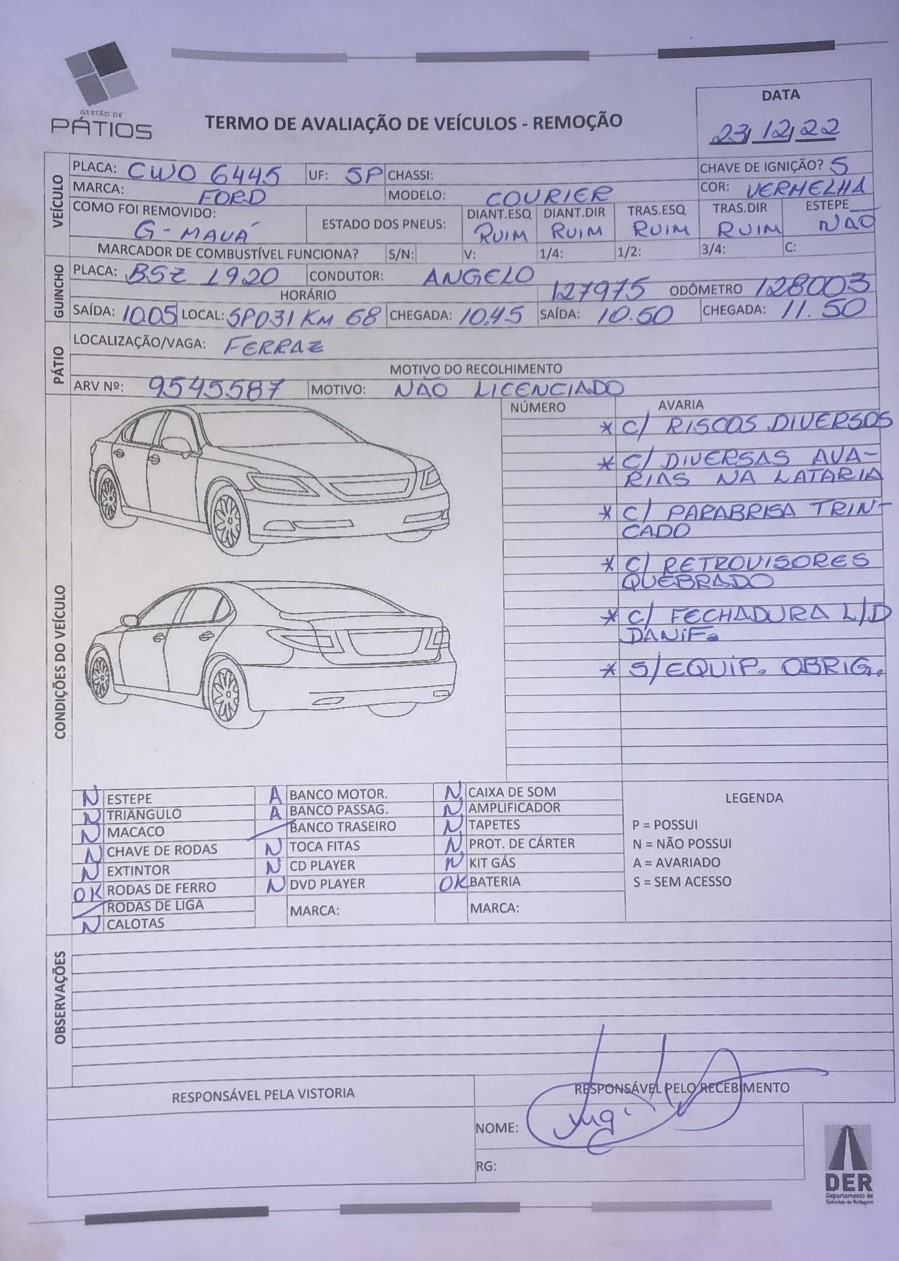 GESTÃO DE
PÁTIOS
TERMO DE AVALIAÇÃO DE VEÍCULOS - REMOÇÃO
DATA
23/12/22
VEÍCULO
PLACA: CWO 6445 UF: SP CHASSI: CHAVE DE IGNIÇÃO? S
MARCA: FORD MODELO: COURIER COR: VERMELHA
COMO FOI REMOVIDO: G-MAUÁ ESTADO DOS PNEUS: DIANT.ESQ RUIM DIANT.DIR RUIM TRAS.ESQ RUIM TRAS.DIR RUIM ESTEPE NÃO
MARCADOR DE COMBUSTÍVEL FUNCIONA? S/N: V: 1/4: 1/2: 3/4: C:
GUINCHO
PLACA: BSZ 1920 CONDUTOR: ANGELO
HORÁRIO 127975 ODÔMETRO 128003
SAÍDA: 10.05 LOCAL: SP031 KM 68 CHEGADA: 10.45 SAÍDA: 10.50 CHEGADA: 11.50
PÁTIO
LOCALIZAÇÃO/VAGA: FERRAZ
MOTIVO DO RECOLHIMENTO
ARV Nº: 9545587 MOTIVO: NÃO LICENCIADO
CONDIÇÕES DO VEÍCULO
NÚMERO AVARIA
* C/ RISCOS DIVERSOS
* C/ DIVERSAS AVA-
RIAS NA LATARIA
* C/ PARABRISA TRIN-
CADO
* C/ RETROVISORES
QUEBRADO
* C/ FECHADURA L/D
DANIF.
* S/EQUIP. OBRIG.
N ESTEPE A BANCO MOTOR. N CAIXA DE SOM
N TRIÂNGULO A BANCO PASSAG. N AMPLIFICADOR
N MACACO BANCO TRASEIRO N TAPETES
N CHAVE DE RODAS N TOCA FITAS N PROT. DE CÁRTER
N EXTINTOR N CD PLAYER N KIT GÁS
OK RODAS DE FERRO N DVD PLAYER OK BATERIA
RODAS DE LIGA MARCA: MARCA:
N CALOTAS
LEGENDA
P = POSSUI
N = NÃO POSSUI
A = AVARIADO
S = SEM ACESSO
OBSERVAÇÕES
RESPONSÁVEL PELA VISTORIA
RESPONSÁVEL PELO RECEBIMENTO
NOME:
RG:
DER
Departamento de
Estradas de Rodagem